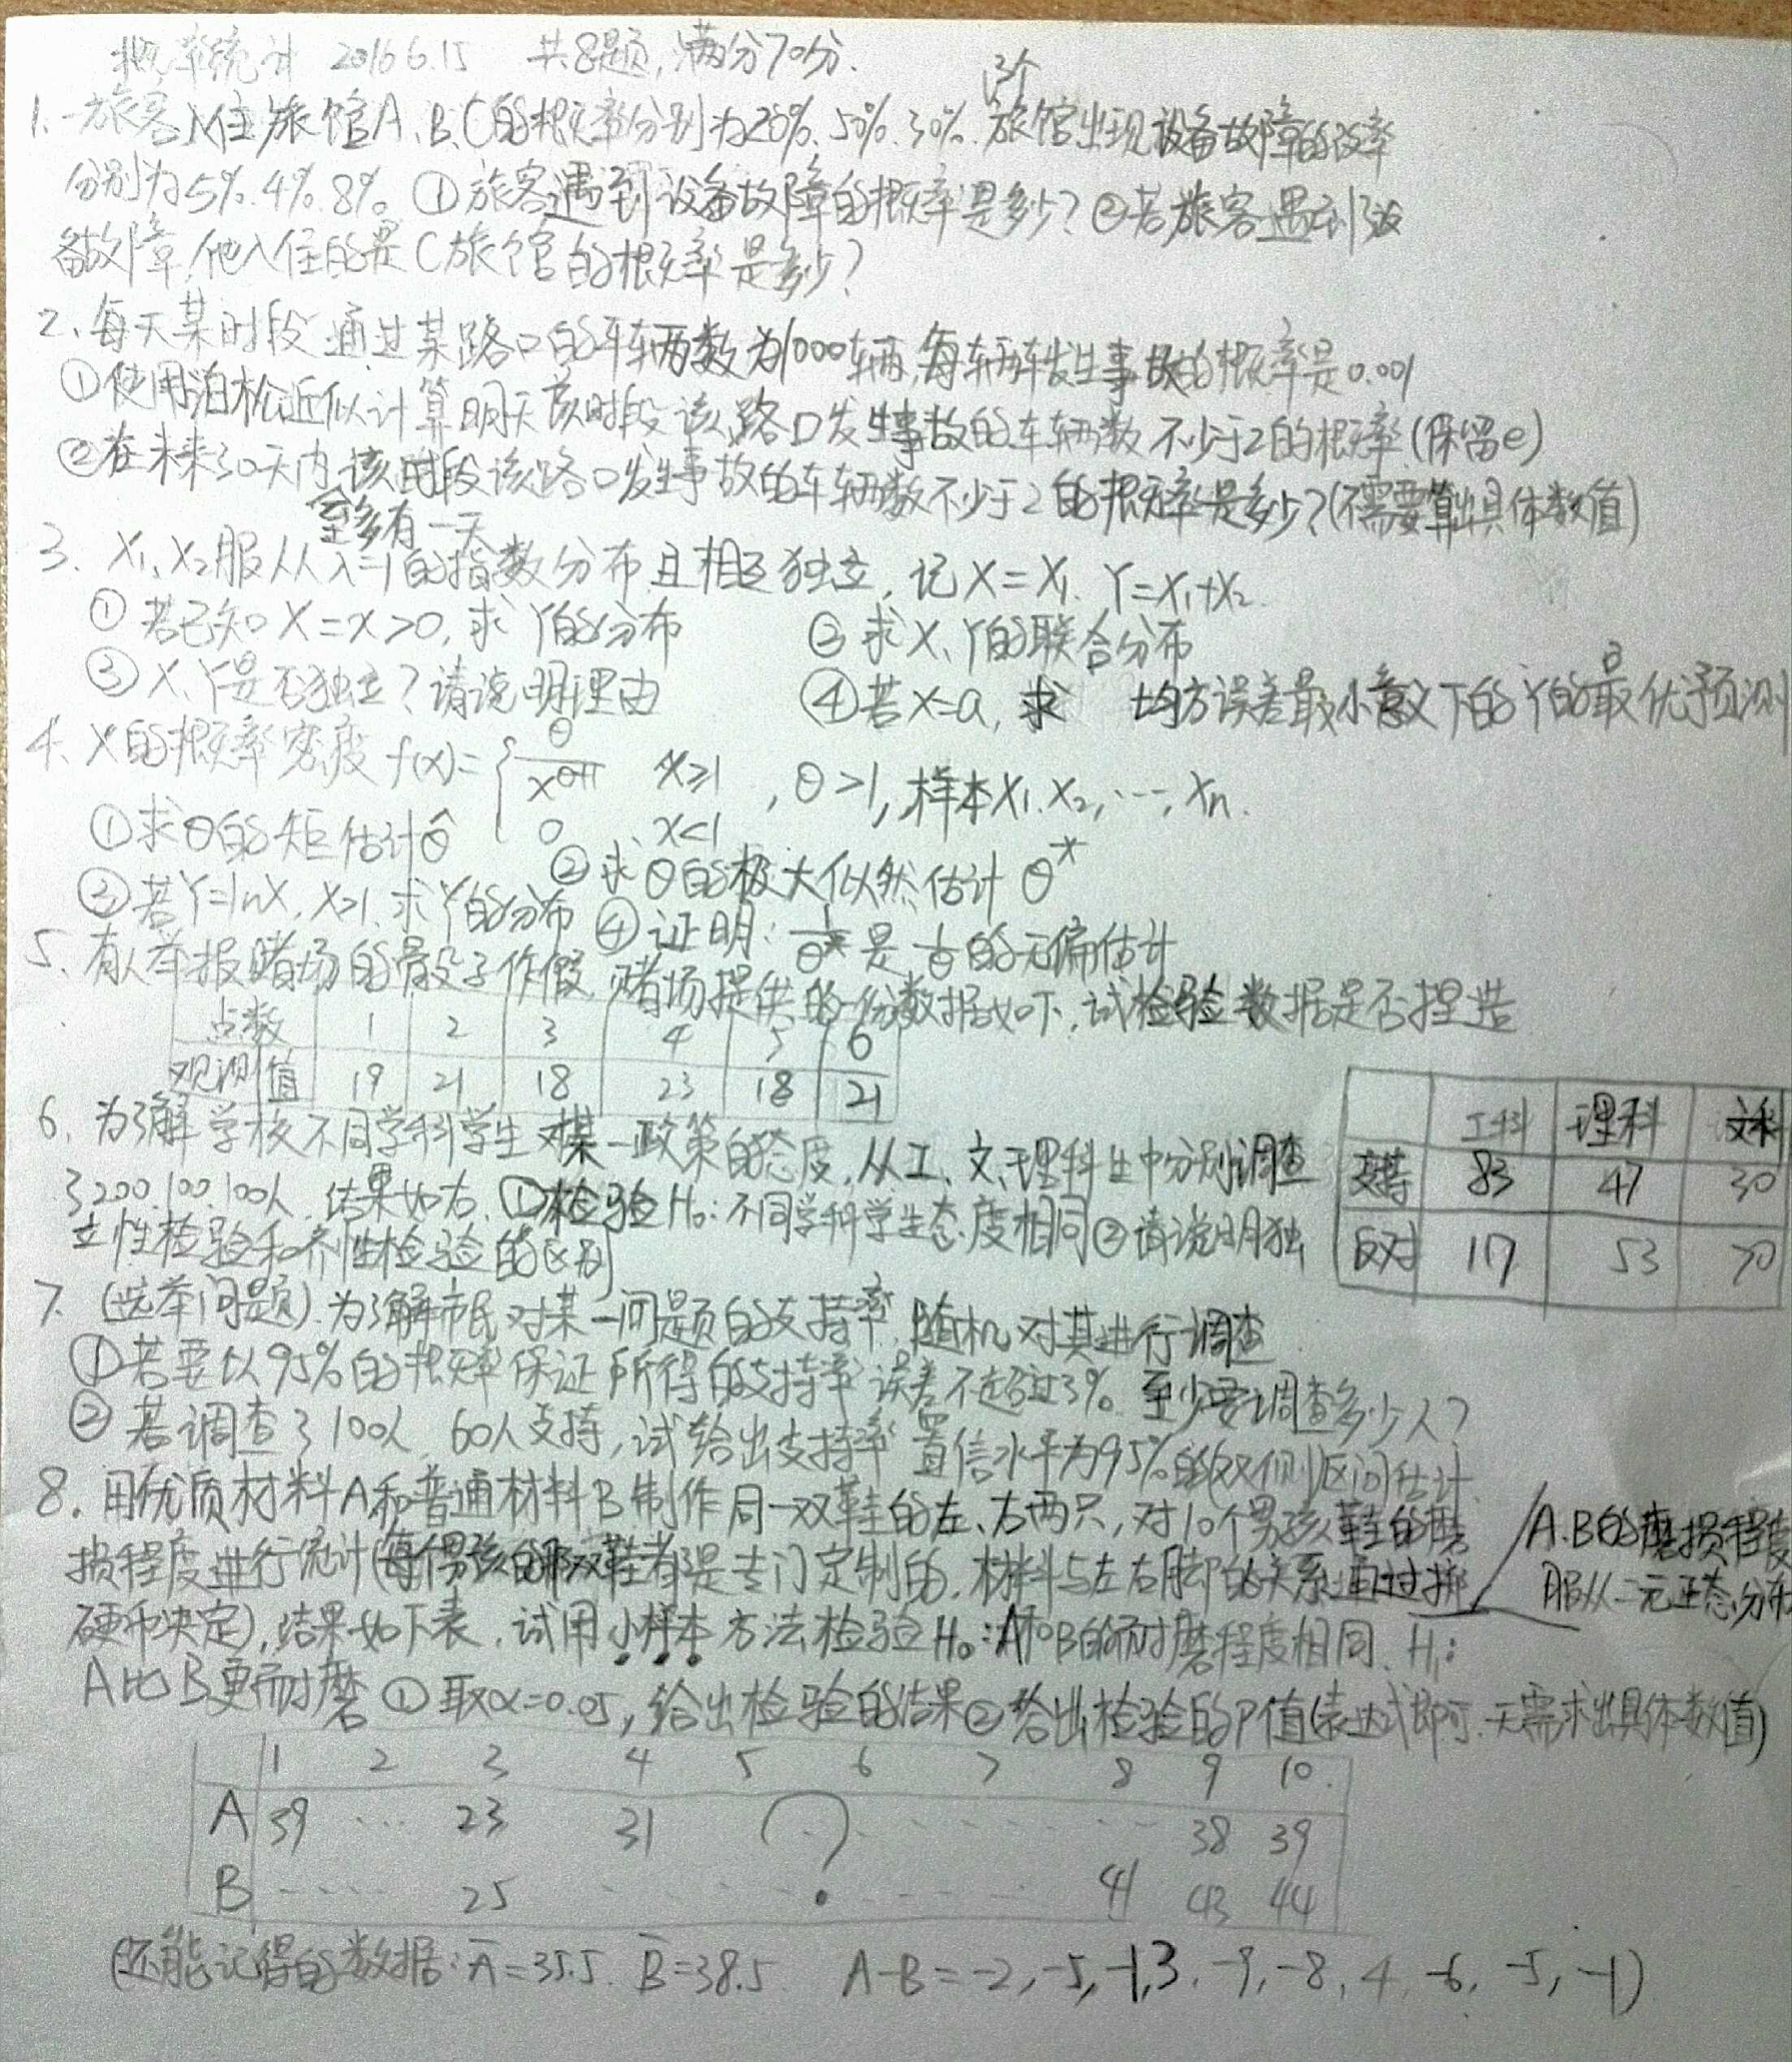 概率统计 2016.6.15 共8题,满分70分.
1.一旅客入住旅馆A、B、C的概率分别为20%、50%、30%. 3个旅馆出现设备故障的概率
分别为5%.4%.8%。①旅客遇到设备故障的概率是多少?②若旅客遇到设
备故障,他入住的是C旅馆的概率是多少?
2.每天某时段通过某路口的车辆数为1000辆,每辆车发生事故的概率是0.001
①使用泊松近似计算明天该时段该路口发生事故的车辆数不少于2的概率(保留e)
②在未来30天内,至多有一天该时段该路口发生事故的车辆数不少于2的概率是多少?(不需要算出具体数值)
3. X1,X2服从λ=1的指数分布且相互独立,记X=X1. Y=X1+X2.
①若已知X=x>0,求Y的分布 ②求X、Y的联合分布
③X、Y是否独立?请说明理由 ④若X=a,求 均方误差最小意义下的Y的最优预测
4. X的概率密度f(x)={θ/x^(θ+1) x≥1, 0, x<1 ,θ>1,样本X1.X2,…,Xn.
①求θ的矩估计θ̂ ②求θ的极大似然估计θ*
③若Y=lnX,X>1,求Y的分布 ④证明:1/θ*是1/θ的无偏估计
5.有人举报赌场的骰子作假,赌场提供的一份数据如下,试检验数据是否捏造
点数 1 2 3 4 5 6
观测值 19 21 18 23 18 21
6.为了解学校不同学科学生对某一政策的态度,从工、文、理科生中分别调查
了200.100.100人,结果如右.①检验H0:不同学科学生态度相同②请说明独
立性检验和齐性检验的区别
工科 理科 文科
支持 83 47 30
反对 117 53 70
7.(选举问题).为了解市民对某一问题的支持率,随机对其进行调查
①若要以95%的概率保证所得的支持率误差不超过3%.至少要调查多少人?
②若调查了100人,60人支持,试给出支持率置信水平为95%的双侧区间估计.
8.用优质材料A和普通材料B制作同一双鞋的左、右两只,对10个男孩鞋的磨
损程度进行统计(每个男孩的那双鞋都是专门定制的,材料与左右脚的关系通过掷
硬币决定),结果如下表,试用小样本方法检验H0:A和B的耐磨程度相同、H1:
A.B的磨损程度
服从二元正态分布
A比B更耐磨①取α=0.05,给出检验的结果②给出检验的P值(表达式即可.无需求出具体数值)
1 2 3 4 5 6 7 8 9 10.
A 39 … 23 31 ? 38 39
B … 25 … 41 43 44
(还能记得的数据: Ā=35.5. B̄=38.5 A-B=-2,-5,-1,3.-9,-8,4,-6,-5,-1)